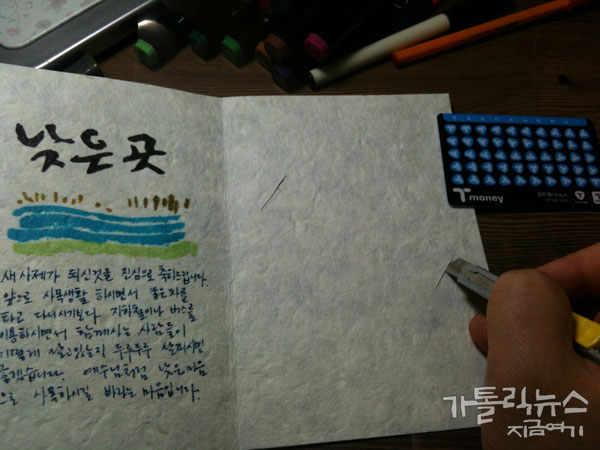 낮은곳
새 사제가 되신것을 진심으로 축하드립니다.
앞으로 사목생활 하시면서 좋은차를
타고 다니시기보다 지하철이나 버스를
이용하시면서 함께사는 사람들이
어떻게 살고있는지 두루두루 살피시면
좋겠습니다. 예수님처럼 낮은마음
으로 사목하시길 바라는 마음입니다.
T money
가톨릭뉴스
지금여기